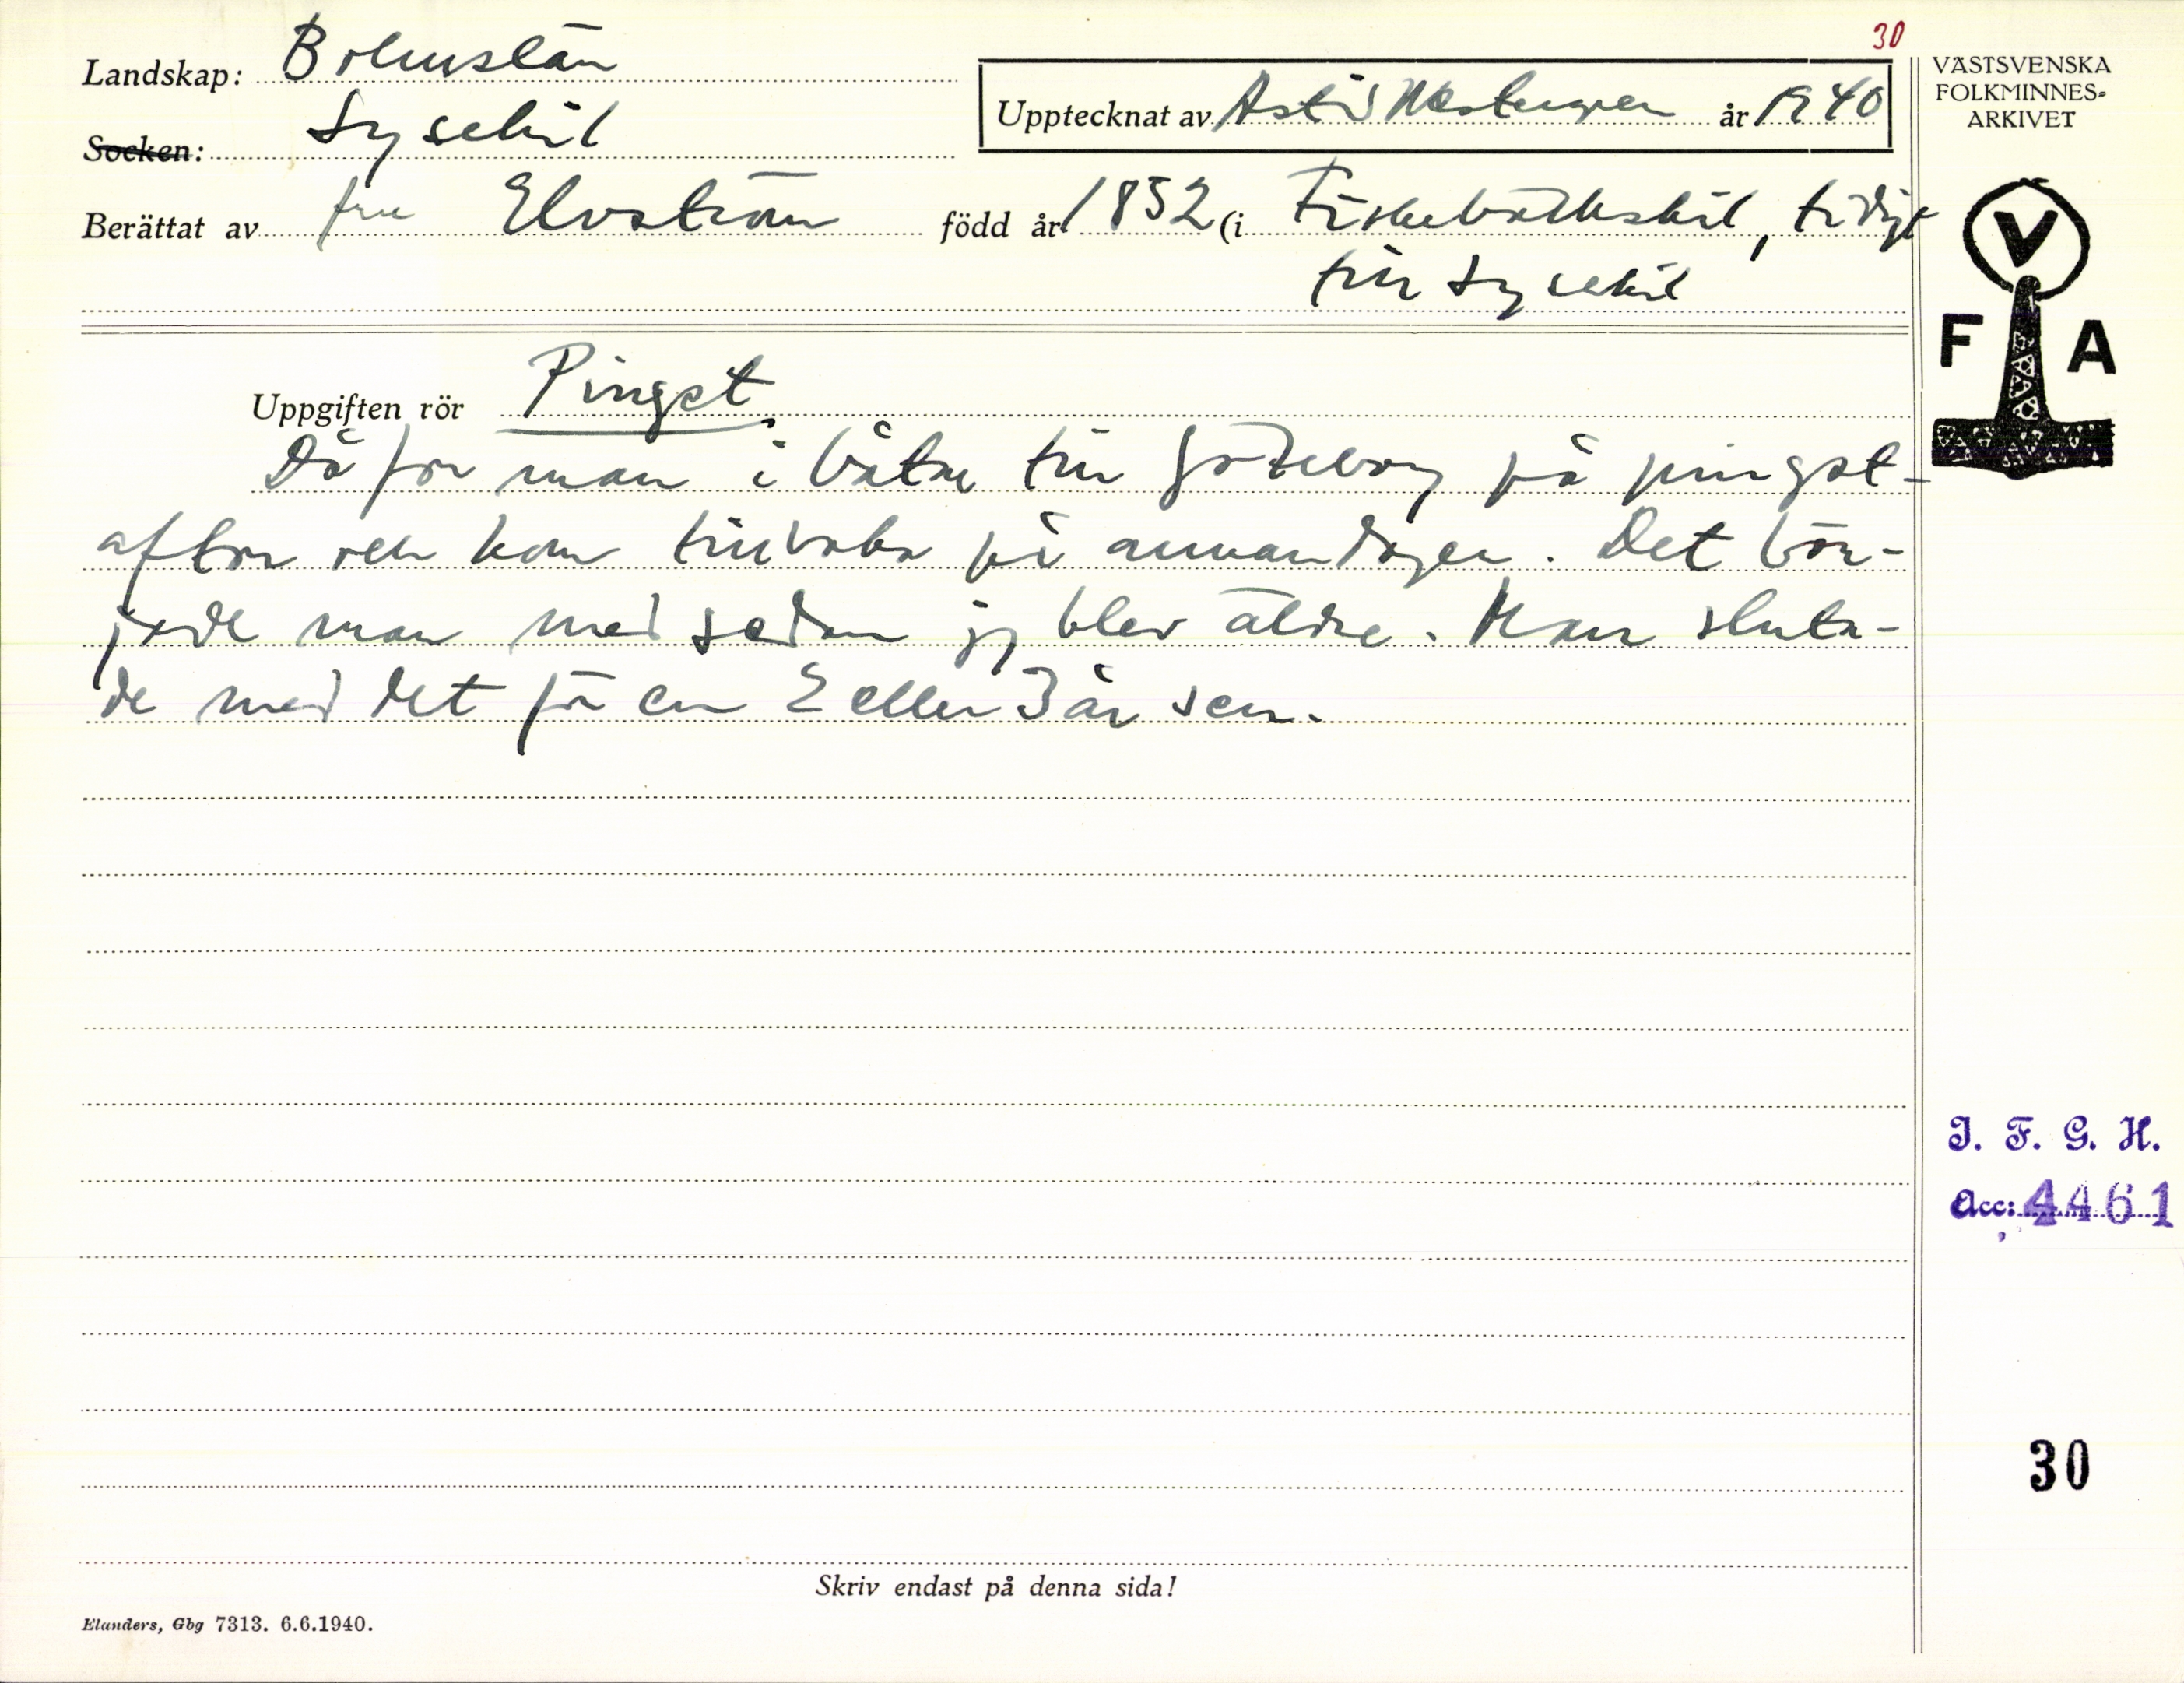 30
Landskap: Bohuslän
Socken: Lysekil
Upptecknat av Astrid Westergren år 1940
Berättat av fru Elvström född år 1852 (i Fiskebäckskil, tidigt
till Lysekil
VÄSTSVENSKA
FOLKMINNES-
ARKIVET
V
F A
Uppgiften rör Pingst.
Då for man i båtar till Göteborg på pingst-
afton och kom tillbaka på annandagen. Det bör-
jade man med sedan jag blev äldre. Man sluta-
de med det för en 2 eller 3 år sen.
I. F. G. H.
Acc: 4461
30
Skriv endast på denna sida!
Elanders, Gbg 7313. 6.6.1940.